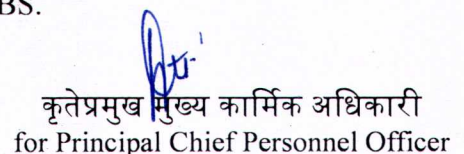 BS.
कृतेप्रमुख मुख्य कार्मिक अधिकारी
for Principal Chief Personnel Officer